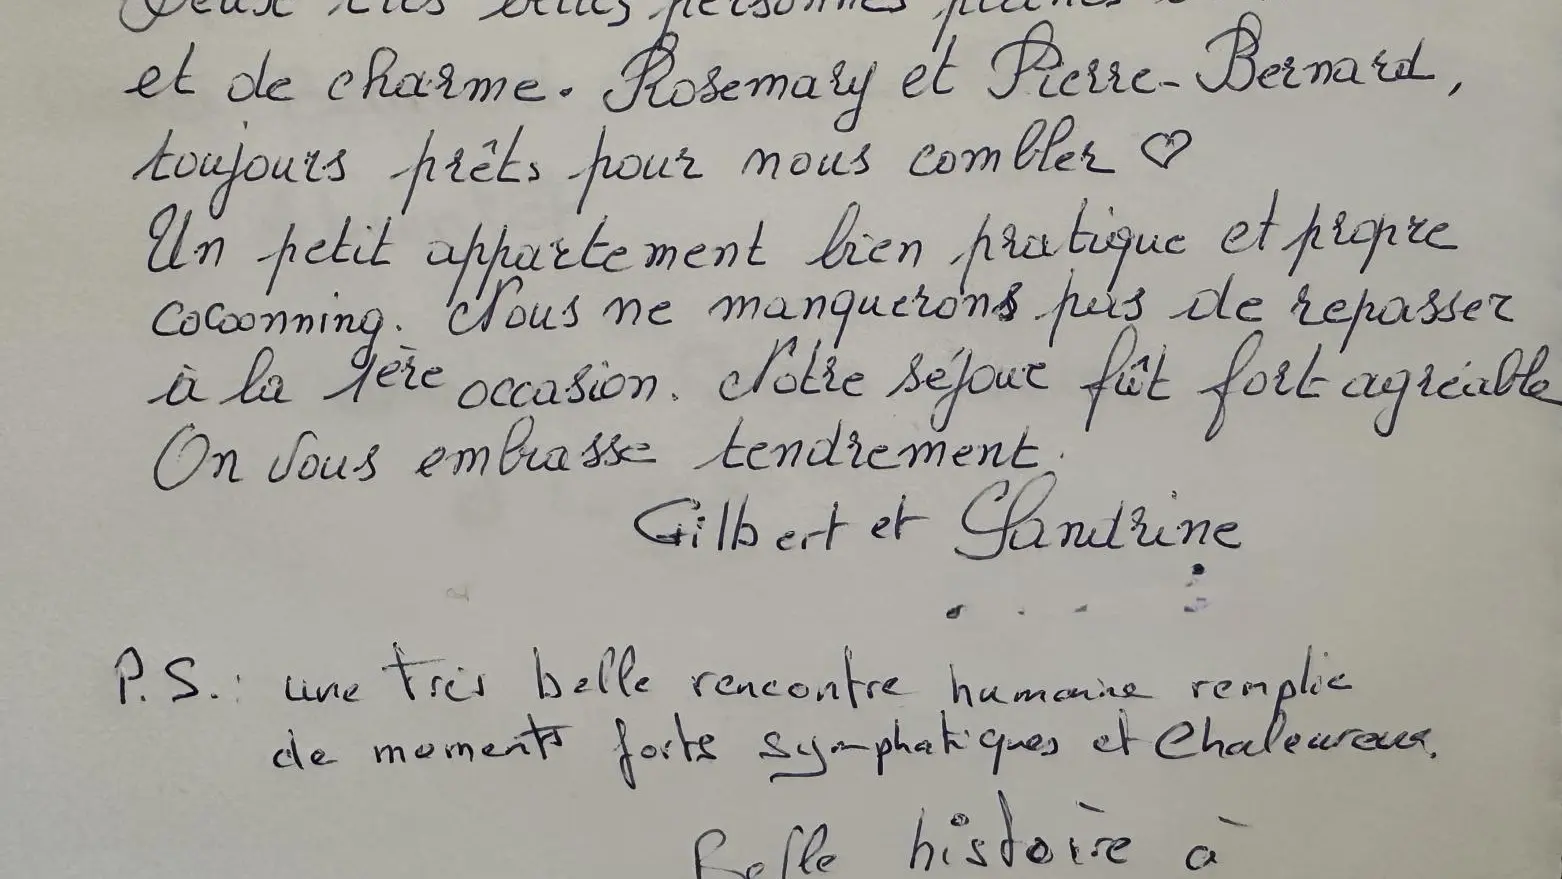 Deux très belles personnes pleines
et de charme. Rosemary et Pierre-Bernard,
toujours prêts pour nous combler ♡
Un petit appartement bien pratique et propre
cocoonning. Nous ne manquerons pas de repasser
à la 1ère occasion. Notre séjour fût fort agréable
On vous embrasse tendrement.
Gilbert et Sandrine
P.S.: une très belle rencontre humaine remplie
de moments forts symphatiques et Chaleureux.
Belle histoire à